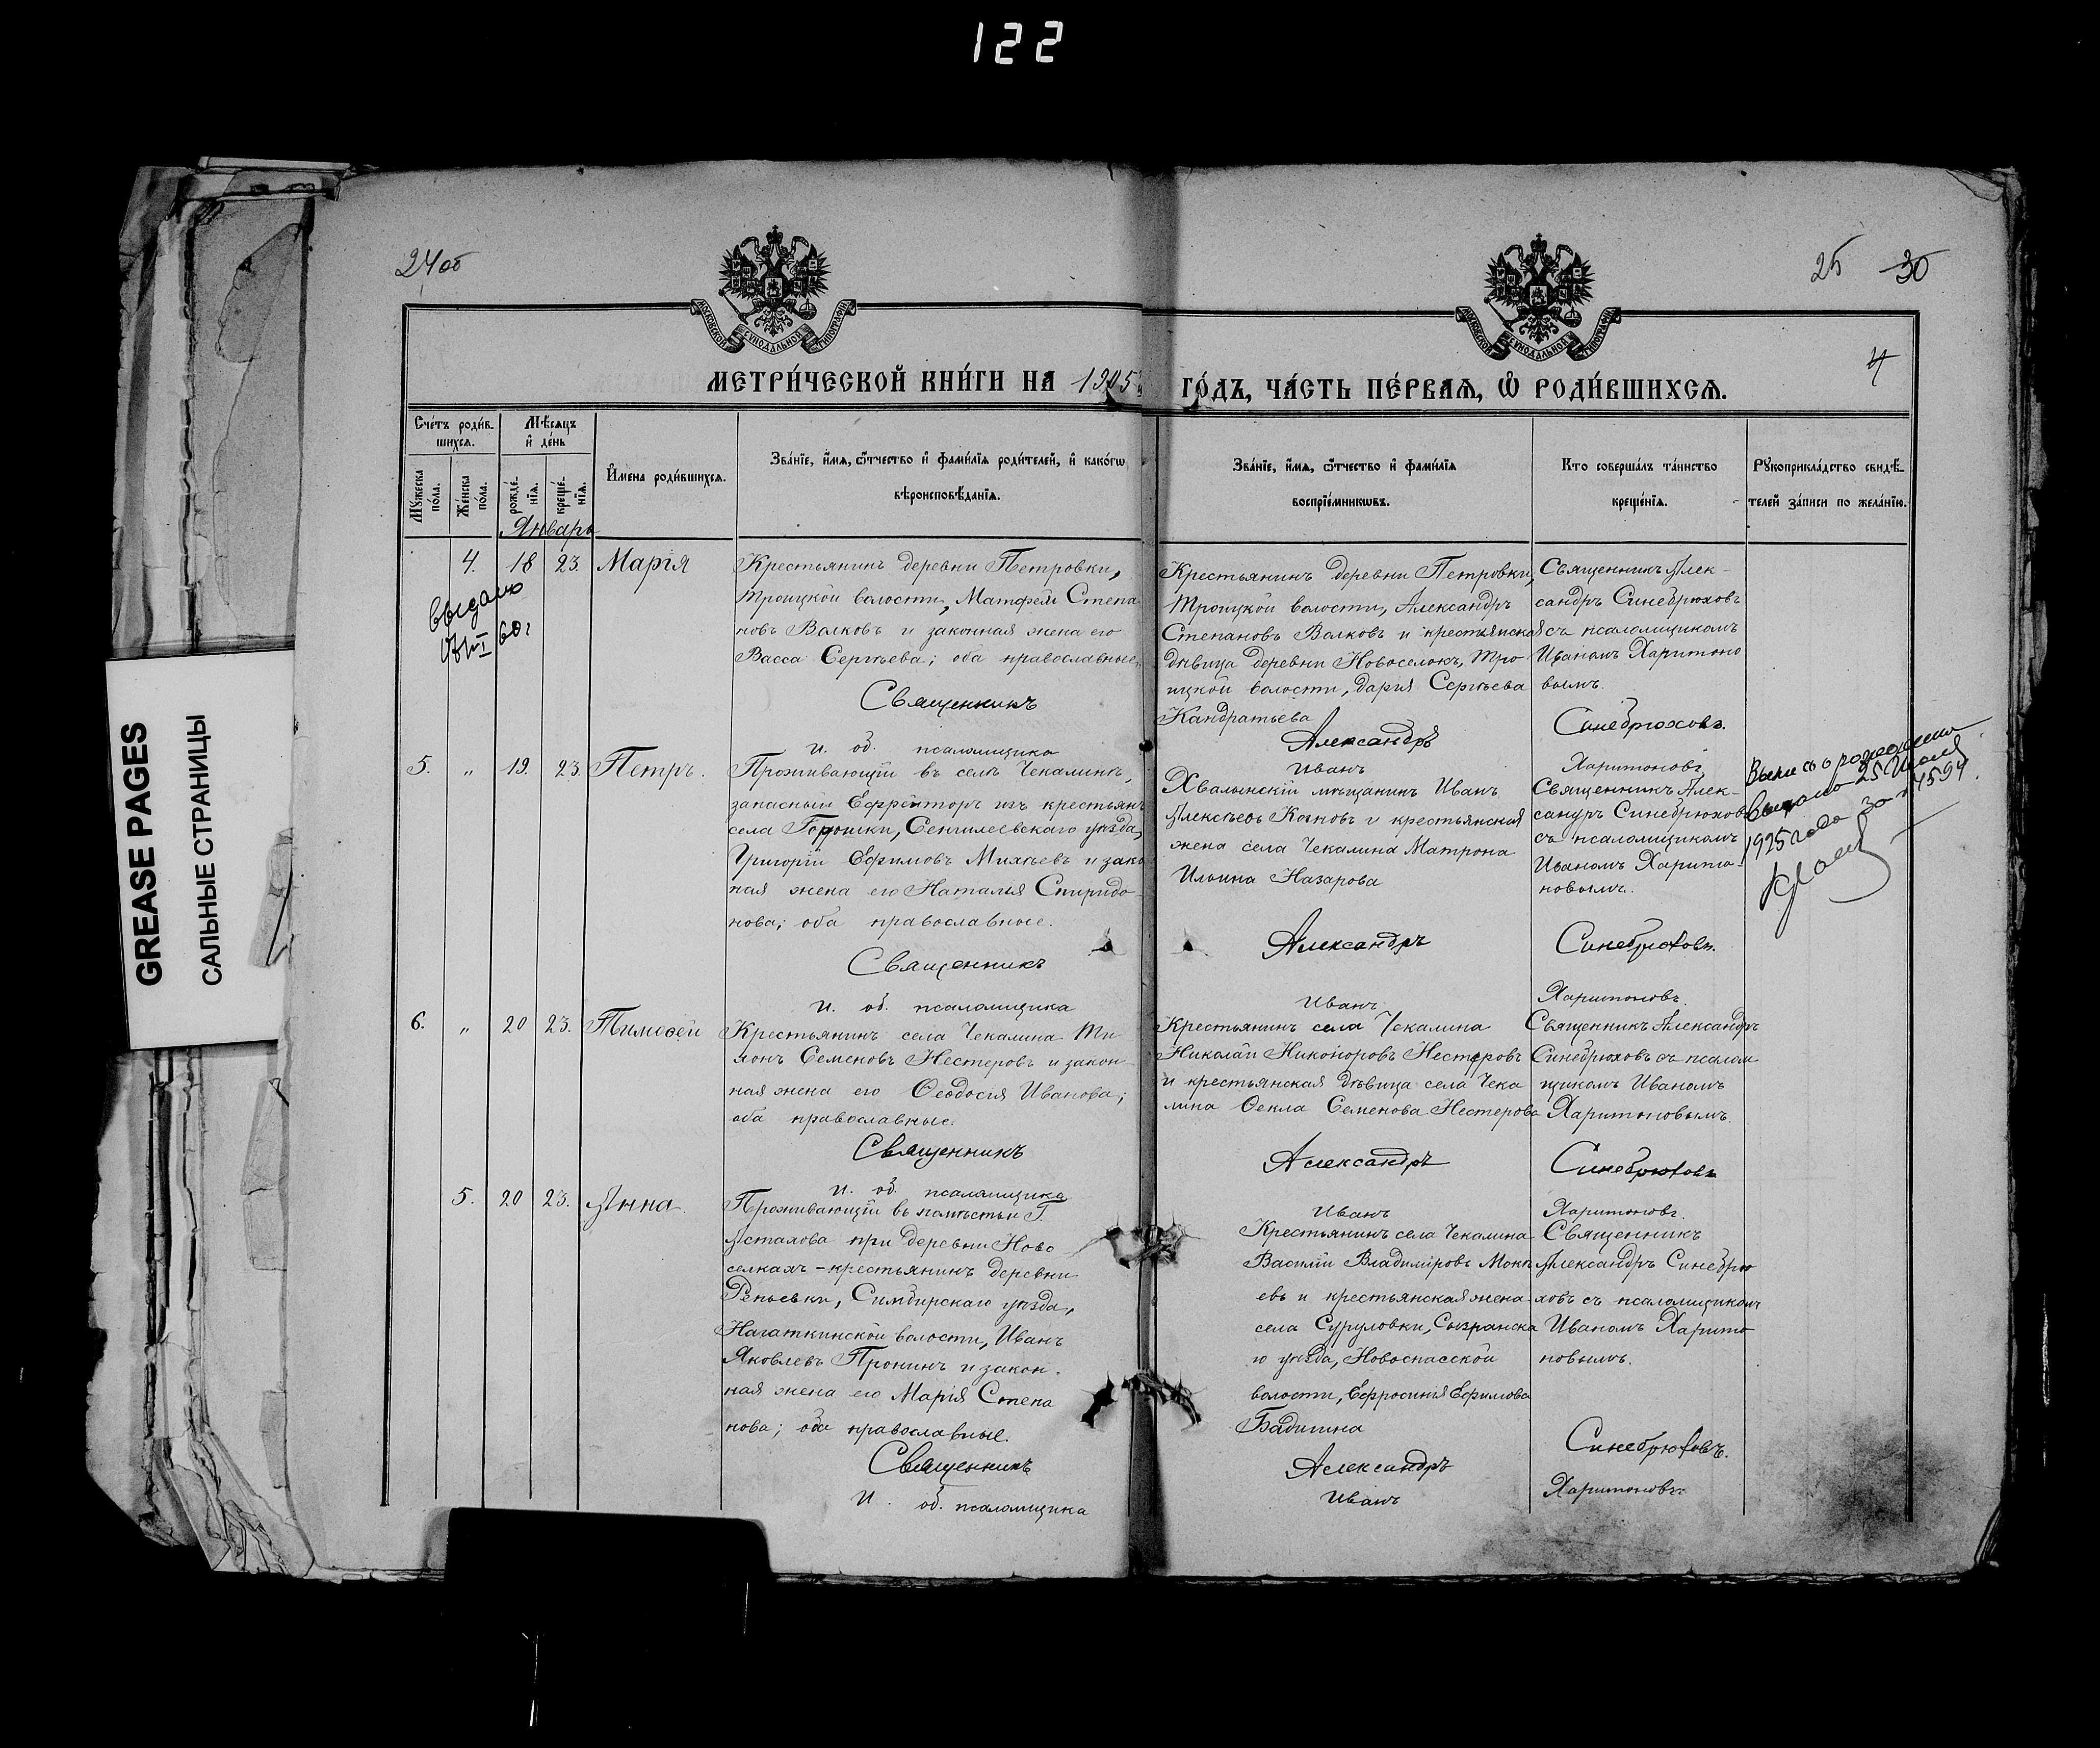 122
GREASE PAGES
САЛЬНЫЕ СТРАНИЦЫ
24об
25 30
4
МОСКОВСКОЙ СУНОДАЛЬНОЙ ТИПОГРАФІИ
МОСКОВСКОЙ СУНОДАЛЬНОЙ ТИПОГРАФІИ
МЕТРИ́ЧЕСКОЙ КНИ́ГИ НА 1905 ГО́ДЪ, ЧА́СТЬ ПЕ́РВАѦ, Ѡ҆ РОДИ́ВШИХСѦ.
Сче́тъ роди́в-
шихсѧ.
Мꙋжеска по́ла.
Же́нска по́ла.
Мѣ́сѧцъ
и҆ де́нь
рожде́-
нїѧ.
креще́-
нїѧ.
И҆мена роди́вшихсѧ.
Зва́нїе, и҆́мѧ, ѻ҆́тчество и҆ фами́лїѧ роди́телей, и҆ како́гѡ
вѣроисповѣ́данїѧ.
Зва́нїе, и҆́мѧ, ѻ҆́тчество и҆ фами́лїѧ
воспрїе́мникѡвъ.
Кто соверша́лъ та́инство
креще́нїѧ.
Рꙋкоприкла́дство свидѣ́-
телей за́писи по жела́нїю.
Январь
4. 18 23. Марія
выдано
60г
Крестьянинъ деревни Петровки,
Троицкой волости, Матфей Степа
новъ Волковъ и законная жена его
Васса Сергѣева; оба православные.
Священникъ
и. об. псаломщика
Крестьянинъ деревни Петровки,
Троицкой волости, Александръ
Степановъ Волковъ и крестьянская
дѣвица деревни Новоселокъ, Тро-
ицкой волости, Дарія Сергѣева
Кандратьева
Александръ
Иванъ
Священникъ Алек-
сандръ Синебрюховъ
съ псаломщикомъ
Иваномъ Харитоно
вымъ.
Синебрюховъ.
Харитоновъ
5. „ 19. 23. Петръ.
Проживающій въ селѣ Чекалинѣ,
запасный Ефрейторъ изъ крестьянъ
села Горюшки, Сенгилеевскаго уѣзда,
Григорій Ефимовъ Михѣевъ и закон
ная жена его Наталья Спиридо-
нова; оба православные.
Священникъ
и. об. псаломщика
Хвалынскій мѣщанинъ Иванъ
Алексѣевъ Коновъ и крестьянская
жена села Чекалина Матрона
Ильина Назарова
Александръ
Иванъ
Священникъ Алек-
сандръ Синебрюховъ
съ псаломщикомъ
Иваномъ Харито-
новымъ.
Синебрюховъ.
Харитоновъ.
Выпись о рождении
выдано 25 Июля
1925 года за № 4594.
6. „ 20 23. Тимоѳей
Крестьянинъ села Чекалина Ти
монъ Семеновъ Нестеровъ и закон-
ная жена его Ѳеодосія Иванова;
оба православные.
Священникъ
и. об. псаломщика
Крестьянинъ села Чекалина
Николай Никоноровъ Нестеровъ
и крестьянская дѣвица села Чека
лина Ѳекла Семенова Нестерова
Александръ
Иванъ
Священникъ Александръ
Синебрюховъ съ псалом
щикомъ Иваномъ
Харитоновымъ.
Синебрюховъ
Харитоновъ.
5. 20 23. Анна.
Проживающій въ помѣстьи Г.
Астахова при деревни Ново
селкахъ - крестьянинъ деревни
Репьевки, Симбирскаго уѣзда,
Нагаткинской волости, Иванъ
Яковлевъ Пронинъ и закон-
ная жена его Марія Степа
нова; оба православные.
Священникъ
И. об. псаломщика
Крестьянинъ села Чекалина
Василій Владиміровъ Моке
евъ и крестьянская жена
села Суруловки, Сызранска
го уѣзда, Новоспасской
волости, Ефросинія Ефимова
Бадигина
Александръ
Иванъ
Священникъ
Александръ Синебрю
ховъ съ псаломщикомъ
Иваномъ Харито
новымъ.
Синебрюховъ.
Харитоновъ.